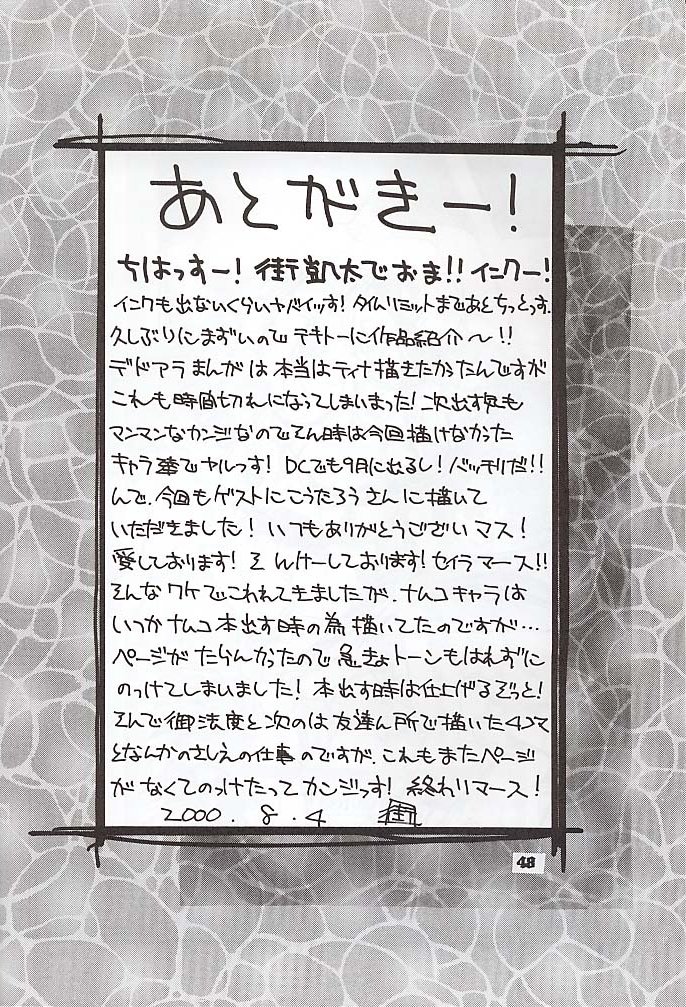 あとがきー!
ちはっすー! 街凱太でおま!! イニクー!
インクも出ないくらいヤバイッす! タイムリミットまであとちっとっす.
久しぶりにまずいので テキトーに作品紹介〜!!
デドアラまんがは本当はティナ描きたかったんですが
これも時間切れになってしまいまった! 次出す
マンマンなカンジなのでそん時は今回描けなかった
キャラ達でヤルっす! DCでも9月に出るし! バッチリだ!!
んで、今回もゲストにこうたろうさんに描いて
いただきました! いつもありがとうございマス!
愛しております! そんけーしております! セイラマース!!
そんなワケでこわれてきましたが、ナムコキャラは
いつかナムコ本出す時の為描いてたのですが…
ページがたらんかったので急きょトーンもはれずに
のっけてしまいました! 本出す時は仕上げるぞっと!
そんで御法度と次のは友達ん所で描いた4コマ
となんかのさしえの仕事のですが、これもまたページ
がなくてのっけたってカンジっす! 終わりマース!
2000.8.4 街
48